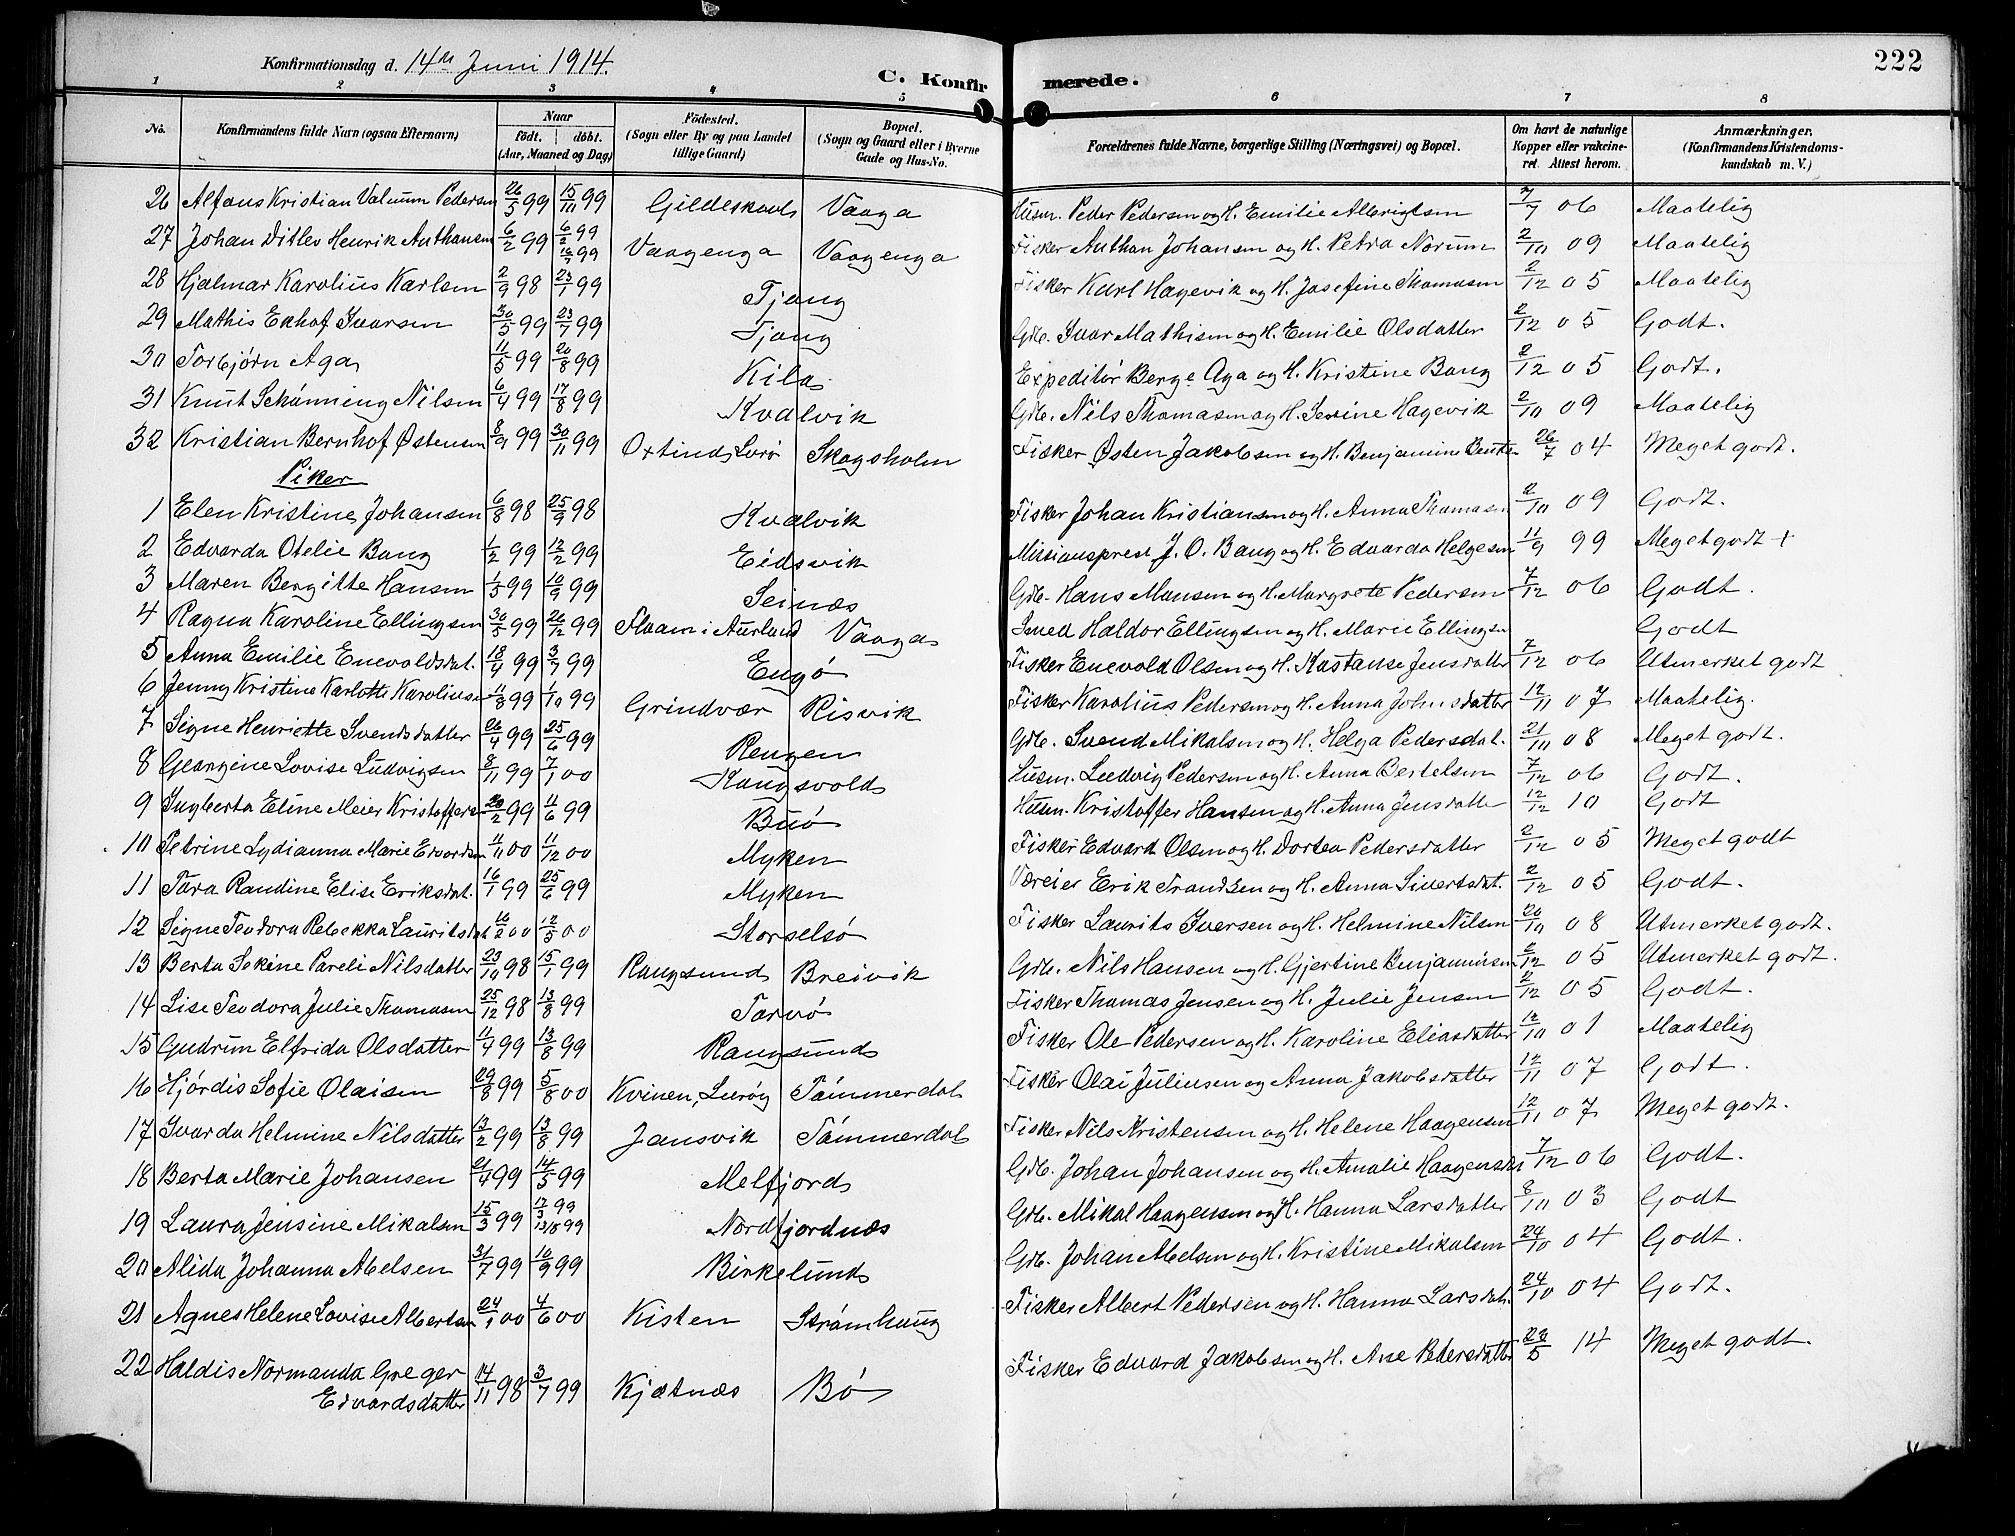 222
Konfirmationsdag d. 14de Juni 1914.
C. Konfirmerede.
1 2 3 4 5 6 7 8
No. Konfirmandens fulde Navn (ogsaa Efternavn) Naar født. døbt. (Aar, Maaned og Dag) Fødested. (Sogn eller By og paa Landet tillige Gaard) Bopæl. (Sogn og Gaard eller i Byerne Gade og Hus-No. Forældrenes fulde Navne, borgerlige Stilling (Næringsvei) og Bopæl. Om havt de naturlige Kopper eller vakcineret. Attest herom. Anmærkninger. (Konfirmandens Kristendomskundskab m. V.)
26 Alfons Kristian Valnum Pedersen 26/5 99 15/10 99 Gildeskaal Vaaga Husm. Peder Pedersen og H. Emilie Albrigtsen 7/7 06 Maatelig
27 Johan Ditlev Henrik Anthonsen 6/2 99 6/2 99 16/7 99 Vaagenga Vaagenga Fisker Anthon Johansen og H. Petra Norum 2/10 09 Maatelig
28 Hjalmar Karolius Karlsen 2/9 98 23/1 99 Tjong Fisker Karl Hagevik og H. Josefine Thomasen 2/12 05 Maatelig
29 Mathis Ekhof Ivarsen 30/5 99 23/7 99 Tjong Gdb. Ivar Mathisen og H. Emilie Olsdatter 2/12 05 Godt.
30 Torbjørn Aga 11/5 99 20/8 99 Kila Expeditør Berge Aga og H. Kristine Bang 2/12 05 Godt.
31 Knut Schønning Nilsen 6/4 99 17/8 99 Kvalvik Gdb. Nils Thomasen og H. Serine Hagevik 2/10 09 Maatelig
32 Kristian Bernhof Østensen 8/9 99 30/11 99 Oxtind, Lurø Skogsholm Fisker Østen Jakobsen og H. Benjamine 26/7 04 Meget godt.
Piker
1 Elen Kristine Johansen 6/8 98 25/9 98 Kvalvik Fisker Johan Kristiansen og H. Anna Thomasen 2/10 09 Godt.
2 Edvarda Otelie Bang 1/2 99 12/2 99 Eidsvik Missionsprest J. O. Bang og H. Edvarda Helgesen 11/9 99 Meget godt +
3 Maren Bergitte Hansen 1/5 99 10/9 99 Seinæs Gdb. Hans Monsen og H. Margrete Pedersen 7/12 06 Godt.
4 Ragna Karoline Ellingsen 30/5 99 26/12 99 Flaam i Aurland Vaaga Smed Haldor Ellingsen og H. Marie Ellingsen Godt
5 Anna Emilie Enevoldsdat. 18/4 99 3/7 99 Engø Fisker Enevold Olsen og H. Kostanse Jensdatter 7/12 06 Utmerket godt
6 Jenny Kristine Karlotte Karoliusen 11/8 99 1/10 99 Grindvær Risvik Fisker Karolius Pedersen og H. Anna Johnsdatter 12/11 07 Maatelig.
7 Signe Henriette Svendsdatter 26/4 99 25/6 99 Rengen Gdb. Svend Mikalsen og H. Helga Pedersdat. 21/11 08 Meget godt.
8 Georgine Lovise Ludvigsen 8/11 99 7/1 00 Kongsvold Husm. Ludvig Pedersen og H. Anna Bertelsen 7/12 06 Godt.
9 Ingberta Eline Meier Kristoffers 20/2 99 11/6 99 Buø Husm. Kristoffer Hansen og H. Anna Jensdatter 12/12 10 Godt
10 Petrine Lydianna Marie Edvardsen 11/11 00 11/12 00 Myken Fisker Edvard Olsen og H. Dortea Pedersdatter 2/12 05 Meget godt
11 Tora Randine Elise Eriksdat. 16/1 99 25/6 99 Myken Væreier Erik Trondsen og H. Anna Sivertsdat. 2/12 05 Godt.
12 Signe Teodora Rebekka Lauritsdat 16/2 00 12/5 00 Storselsø Fisker Laurits Iversen og H. Helmine Nilsen 20/10 08 Utmerket godt.
13 Berta Sekine Pareli Nilsdatter 23/10 98 15/1 99 Rangsund Breivik Gdb. Nils Hansen og H. Gjertine Benjaminsen 2/12 05 Utmerket godt.
14 Lise Teodora Julie Thomasen 25/12 98 13/8 99 Tarvø Fisker Thomas Jensen og H. Julie Jensen 2/12 05 Godt.
15 Gudrun Elfrida Olsdatter 11/4 99 13/8 99 Rangsund Fisker Ole Pedersen og H. Karoline Eliasdatter 12/10 01 Maatelig
16 Hjørdis Sofie Olaisen 29/8 99 5/8 00 Kvinen, Lurøy Tømmerdal Fisker Olai Juliusen og Anna Jakobsdatter 12/11 07 Godt.
17 Ivarda Helmine Nilsdatter 13/2 99 13/8 99 Jansvik Tømmerdal Fisker Nils Kristensen og H. Helene Haagensen 12/11 07 Meget godt.
18 Berta Marie Johansen 21/4 99 14/5 99 Melfjord Gdb. Johan Johansen og H. Amalie Haagensen 7/12 06 Godt.
19 Laura Jensine Mikalsen 15/3 99 17/3 99 13/8 99 Nordfjordnæs Gdb. Mikal Haagensen og H. Hanna Larsdatter 8/10 03 Godt
20 Alida Johanna Abelsen 31/7 99 10/9 99 Birkelund Gdb. Johan Abelsen og H. Kristine Mikalsen 24/10 04 Godt.
21 Agnes Helene Lovise Albertsen 24/1 00 4/6 00 Kisten Strømhaug Fisker Albert Pedersen og H. Hanna Larsdat. 24/10 04 Godt.
22 Haldis Normanda Greger Edvardsdatter 14/11 98 3/7 99 Kjætnæs Bø Fisker Edvard Jakobsen og H. Ane Pedersdatter 22/5 14 Meget godt.